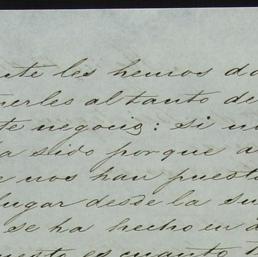 nte les hemos da
nerles al tanto de
te negocio: si no
a sido porque a
e nos han puesto
lugar desde la su
se ha hecho en a
uesto es cuanto t